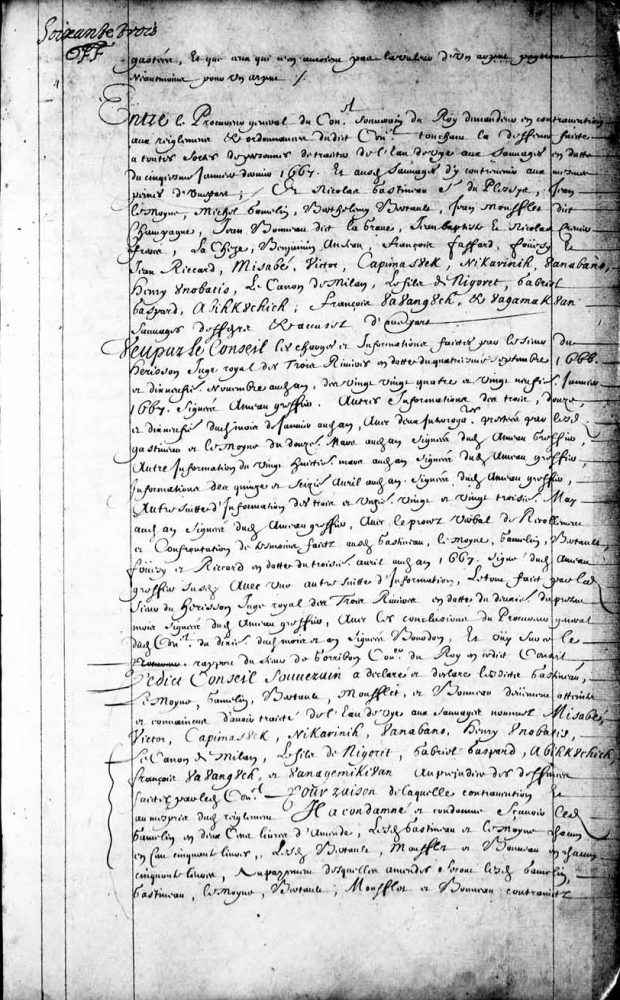 Soixante trois
gastées, Et que ceux qui n'en auroient pas la valleur d'un arpent payeront
Neantmoins pour un arpent /.
Entre le Procureur general du Con.el Souuerain du Roy demandeur en contrauention
aux reglemens Et ordonnances dudit Con.el touchant la deffense faicte
a toutes sortes de personnes de traitter de l'Eau de vye aux Sauuages en datte
du cinquiesme Januier dernier 1667. Et ausd. Sauuages d'y contreuenir aux mesmes
peines d'vnepart; Et Nicolas Gastineau S.r du Plessys, Jean
le Moyne, Michel Gamelin, Barthelemy Bertault, Jean Moufflet dit
Champagne, Jean Bonneau dit la braue, Jean baptiste Et Nicolas
La Cheze, Benjamin Anseau, François Fassard, foüezy Et
Jean Riccard, Misabé, Victor, Capimas8ek, Nikarinik, 8anabano,
Henry 8nobatis, Le Canon de Milan, Le fils de Nigoret, Gabriel
Gaspard, Abihk8chich; François 8a8angs8ek, Et 8agamak8an
Sauuages deffendeurs Et accusez d'autrepart
Veu par le Conseil les charges et Informations faictes par les Sieur du
herisson Juge royal des Trois Riuieres en datte du quatriesme Septembre 1666.
et dixneufies. Nouembre aud. an, des vingt vingt quatre et vingt neufies. Januier
1667. Signées Ameau greffier. Autres Informations des trois, douze,
et dixneufies dud. mois de Januier aud. an, Auec deux Interrog.res prestées par lesd.
gastineau et le Moyne du douze. Mars aud. an Signées dud. Ameau Greffier,
Autre Information du vingt huicties. mars aud. an Signée dud. Ameau greffier,
Informations des quinze et Seizies Auril aud. an Signées dud. Ameau greffier,
Autre suitte d'Information des trois et vnzies. vingt et vingt troisies. May
aud. an Signées dud. Ameau greffier, Auec le procez Verbal de Recollement
et Confrontation de tesmoins faictz ausd. Gastineau, le Moyne, Gamelin, Bertault,
foüezy et Riccard en datte du troisies. auril aud. an 1667. Signé dud. Ameau
greffier Auec Vne autre suitte d'Information, Le tout faict par led.
Sieur du Herisson Juge royal des Trois Riuieres en datte du dixies. du present
mois Signées dud. Ameau greffier, Auec les conclusions du Procureur general
dud. Con.el du dixies. dud. mois et an Signées Bourdon, Et oüy Sur ce le
rapport du Sieur de Gorribon Con.er du Roy en cedit Conseil
Ledict Conseil Souuerain a declaré et declare lesdits Gastineau,
Le Moyne, Gamelin, Bertault, Moufflet, et Bonneau deüement atteints
et conuaincus d'auoir traicté de l'Eau de vye aux Sauuages nommez Misabé,
Victor, Capimas8ek, Nikarinik, 8anabano, Henry 8nobatis,
Le Canon de Milan, Le fils de Nigoret, Gabriel Gaspard, Abihk8chich,
françois 8a8angs8ek, et 8anagemiki8an Au prejudice des deffenses
faictes par led. Con.el Pour raison de laquelle contrauention Et
au mespris dud. reglement Il a condamné et condamne Sçauoir led.
Gamelin en deux Cens liures d'Amende, Lesd. Gastineau et le Moyne chacun
en Cent cinquante liures, Lesd. Bertault, Moufflet et Bonneau en chacun
cinquante liures, Au payement desquelles amendes Seront lesd. Gamelin,
Gastineau, le Moyne, Bertault, Moufflet et Bonneau contrainctz